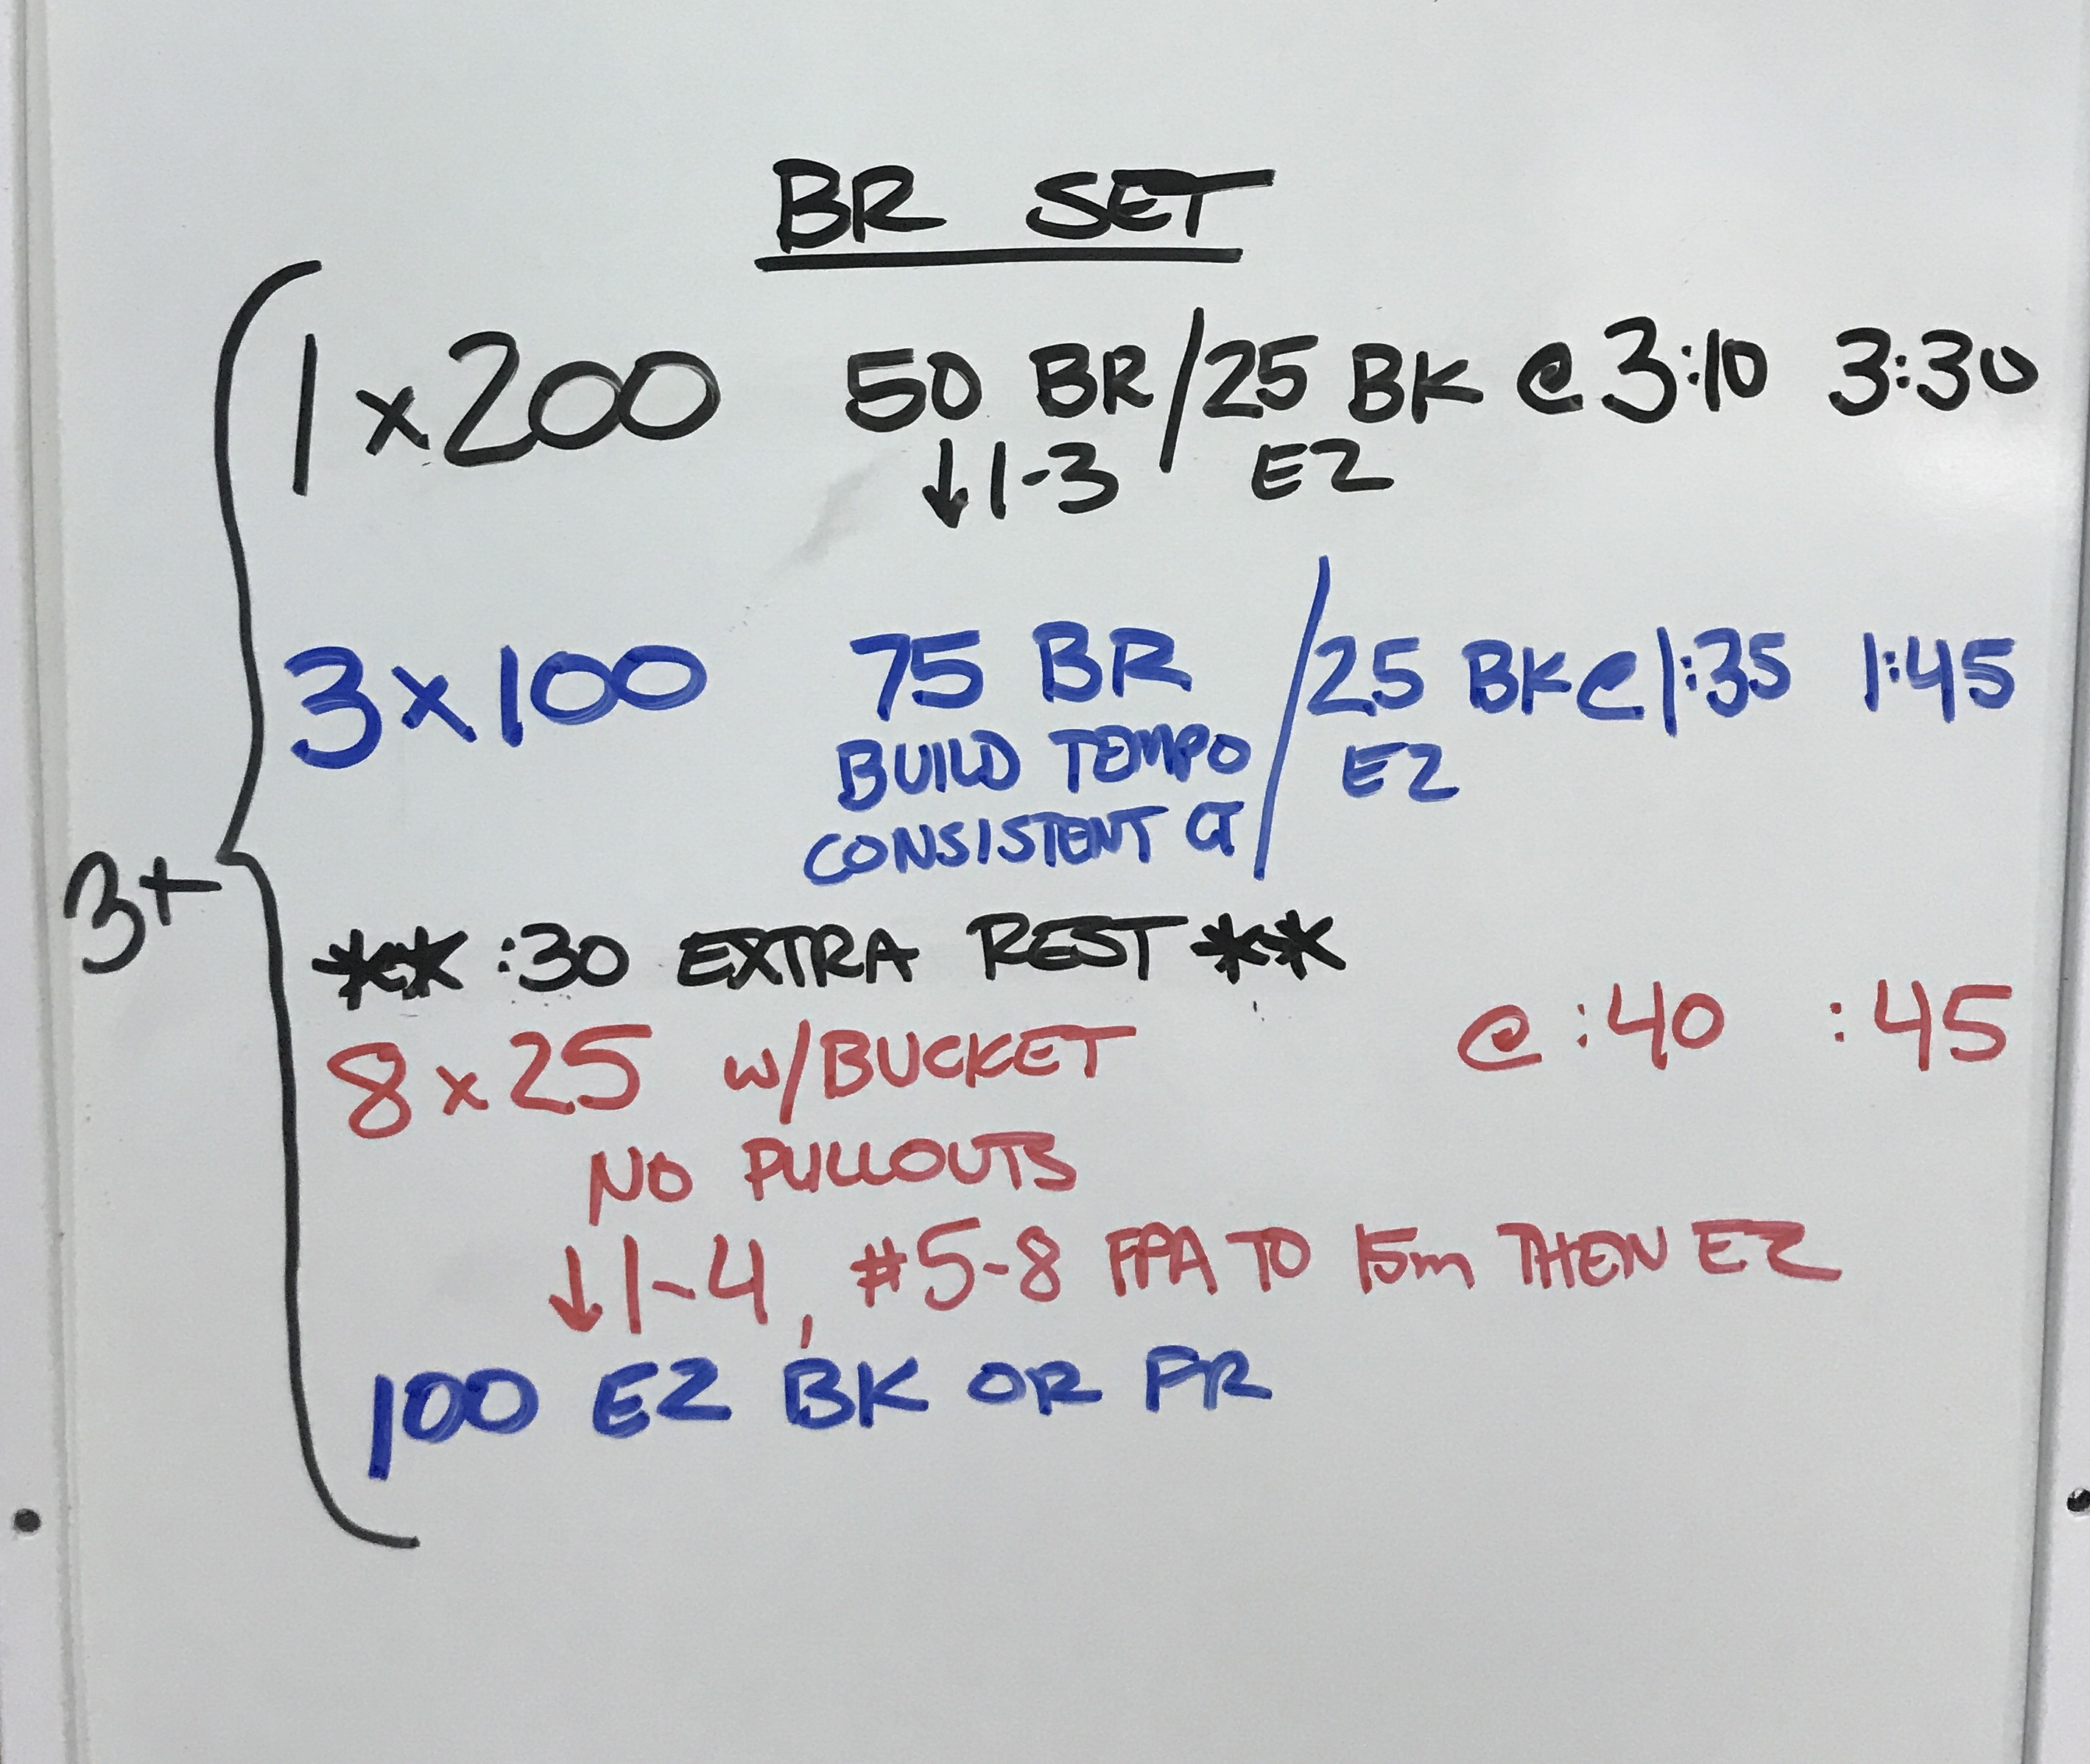 BR SET
1x200 50 BR/25 BK @ 3:10 3:30
↓1-3 EZ
3x100 75 BR/25 BK @ 1:35 1:45
BUILD TEMPO EZ
CONSISTENT CT
3x
** :30 EXTRA REST **
8x25 w/BUCKET @ :40 :45
NO PULLOUTS
↓1-4, #5-8 FPA TO 15m THEN EZ
100 EZ BK OR FR